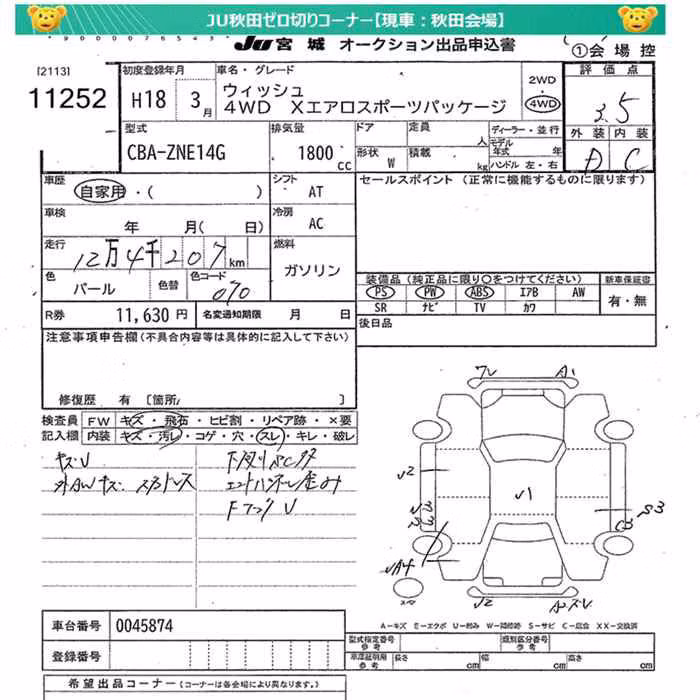 JU秋田ゼロ切りコーナー【現車：秋田会場】
JU 宮城 オークション出品申込書
①会場控
[2113]
11252
初度登録年月
H18 3月
車名・グレード
ウィッシュ
4WD Xエアロスポーツパッケージ
2WD
4WD
評価点
3.5
外装 内装
D C
型式
CBA-ZNE14G
排気量
1800 cc
ドア
定員
人
形状 W
積載
kg
ディーラー・並行
モデル年式 年
ハンドル 左・右
車歴
自家用・( )
シフト
AT
セールスポイント (正常に機能するものに限ります)
車検
年 月( 日)
冷房
AC
走行
12万4千207km
燃料
ガソリン
色
パール
色替
色コード
070
装備品 (純正品に限り○をつけてください)
新車保証書
PS PW ABS エアB AW
SR ナビ TV カワ
有・無
R券 11,630 円
名変通知期限 月 日
後日品
注意事項申告欄 (不具合内容等は具体的に記入して下さい)
修復歴 有 [箇所 ]
検査員記入欄
FW キズ・飛石・ヒビ割・リペア跡・×要
内装 キズ・汚レ・コゲ・穴・スレ・キレ・破レ
キズU
外AWキズ
Fフェンダ U
U2
U1
S3
A1
UA4
U2
A2
A-キズ E-エクボ U-凹み W-補修跡 S-サビ C-腐食 XX-交換済
車台番号 0045874
登録番号
型式指定番号 参考
類別区分番号 参考
車庫証明用 参考
長さ cm
幅 cm
高さ cm
希望出品コーナー (コーナーは各会場により異なります。)